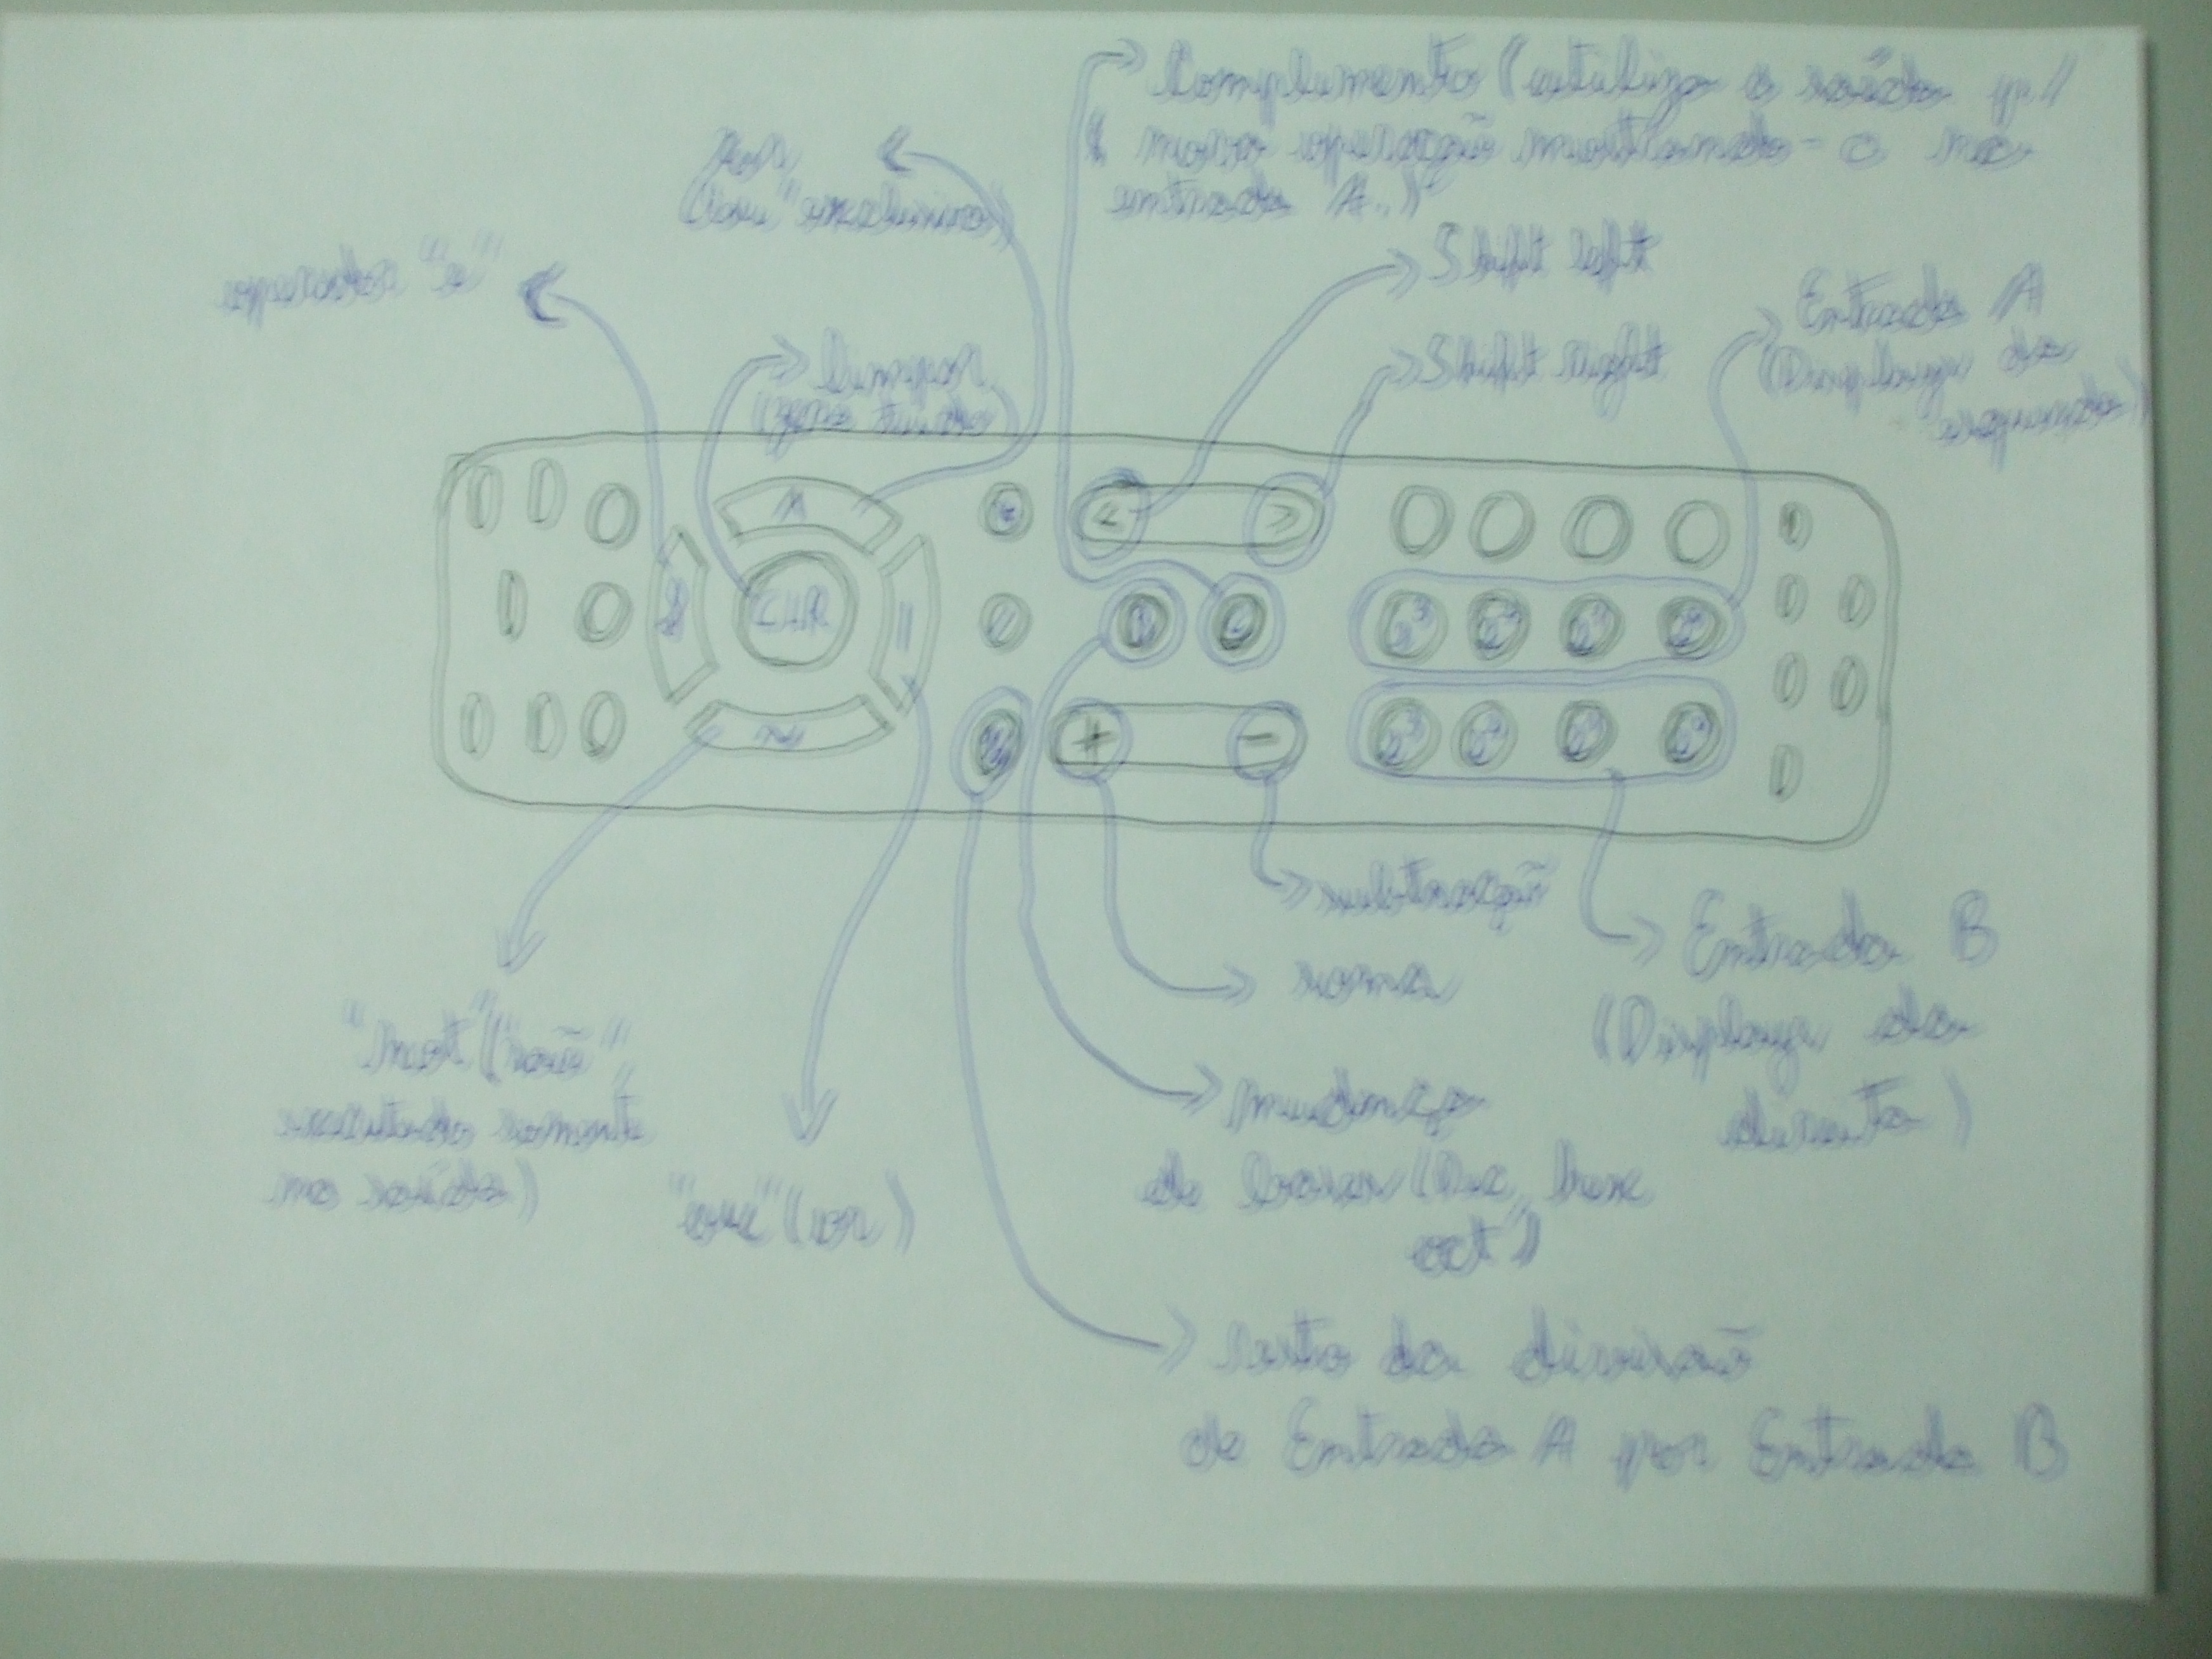 Complemento (utiliza a saída p/
nova operação mostrando-a na
entrada A..)
xor
("ou" exclusivo)
operador "e"
Shift left
Shift right
Entrada A
(Display da
esquerda)
limpar
(zera tudo)
^
<
>
&
CLR
||
D
C
b³ b² b¹ b⁰
~
%
+
-
b³ b² b¹ b⁰
subtração
soma
Entrada B
(Display da
direita)
"not" ("não",
executado somente
na saída)
"ou" (or)
mudança
de base (Dec, hex
oct)
resto da divisão
de Entrada A por Entrada B